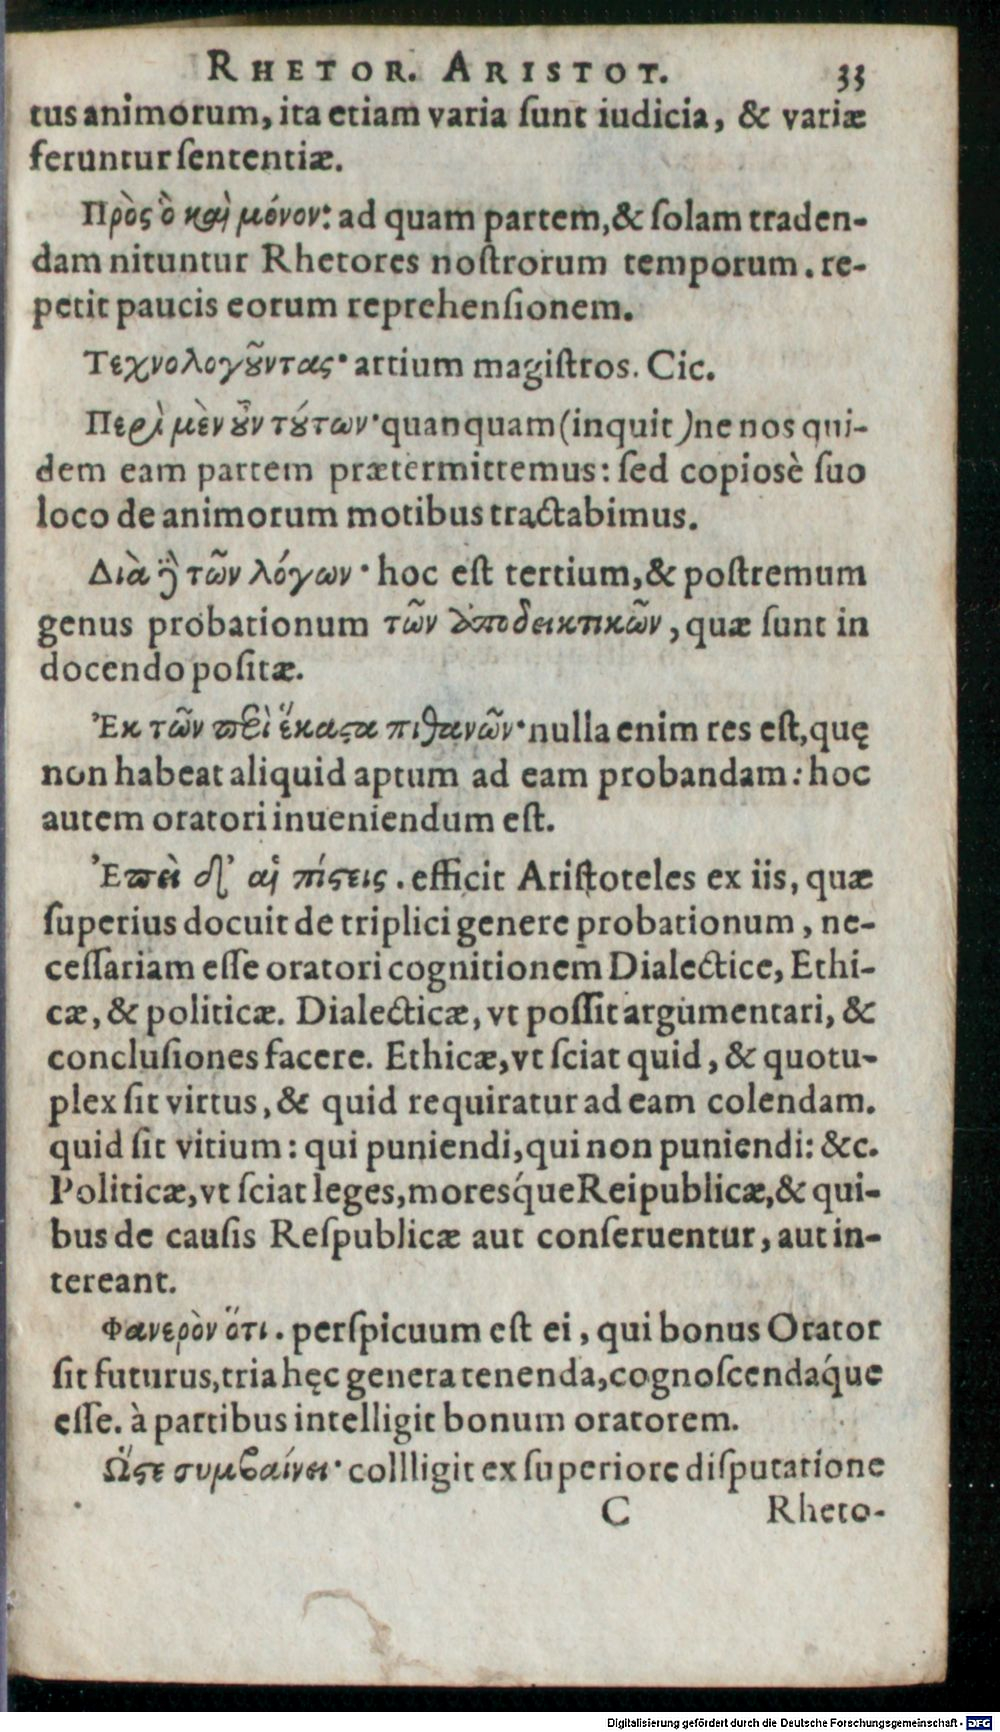 RHETOR. ARISTOT. 33
tus animorum, ita etiam varia ſunt iudicia, & variæ
feruntur ſententiæ.
Πρὸς ὃ καὶ μόνον: ad quam partem, & ſolam traden-
dam nituntur Rhetores noſtrorum temporum. re-
petit paucis eorum reprehenſionem.
Τεχνολογοῦντας· artium magiſtros. Cic.
Περὶ μὲν οὖν τούτων· quanquam (inquit) ne nos qui-
dem eam partem prætermittemus: ſed copiosè ſuo
loco de animorum motibus tractabimus.
Διὰ δὲ τῶν λόγων· hoc eſt tertium, & poſtremum
genus probationum τῶν ἀποδεικτικῶν, quæ ſunt in
docendo poſitæ.
Ἐκ τῶν περὶ ἕκαστα πιθανῶν· nulla enim res eſt, quę
non habeat aliquid aptum ad eam probandam: hoc
autem oratori inueniendum eſt.
Ἐπεὶ δ' αἱ πίστεις. efficit Ariſtoteles ex iis, quæ
ſuperius docuit de triplici genere probationum, ne-
ceſſariam eſſe oratori cognitionem Dialectice, Ethi-
cæ, & politicæ. Dialecticæ, vt poſſit argumentari, &
concluſiones facere. Ethicæ, vt ſciat quid, & quotu-
plex ſit virtus, & quid requiratur ad eam colendam.
quid ſit vitium: qui puniendi, qui non puniendi: &c.
Politicæ, vt ſciat leges, moresq́ue Reipublicæ, & qui-
bus de cauſis Reſpublicæ aut conſeruentur, aut in-
tereant.
Φανερὸν ὅτι. perſpicuum eſt ei, qui bonus Orator
ſit futurus, tria hęc genera tenenda, cognoſcendaq́ue
eſſe. à partibus intelligit bonum oratorem.
Ὥστε συμβαίνει· collligit ex ſuperiore diſputatione
C Rheto-
Digitalisierung gefördert durch die Deutsche Forschungsgemeinschaft - DFG